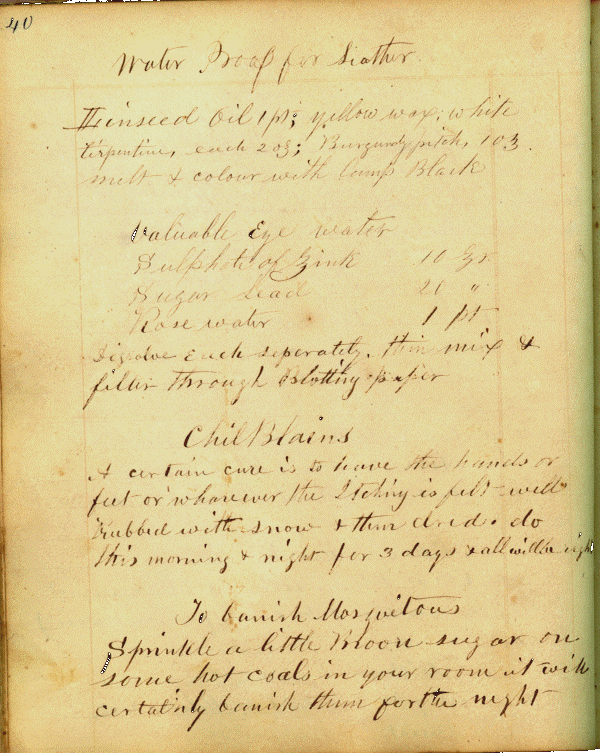 40
Water Proof for Leather.
Linseed Oil 1 pt; yellow wax; white
terpentine, each 2 oz; Burgundy pitch, 1 oz.
melt & colour with lamp Black
Valuable Eye water
Sulphate of Zink 10 gr
Sugar Lead 20 "
Rose water 1 pt
Disolve Each seperately. then mix &
filter through Blotting paper
Chil Blains
A certain cure is to have the hands or
feet or wharever the Itching is felt well
Rubbed with snow & then dried. do
this morning & night for 3 days & all will be right
To banish Mosquitous
Sprinkle a little Broon sugar on
some hot coals in your room it will
certainly banish them for the night